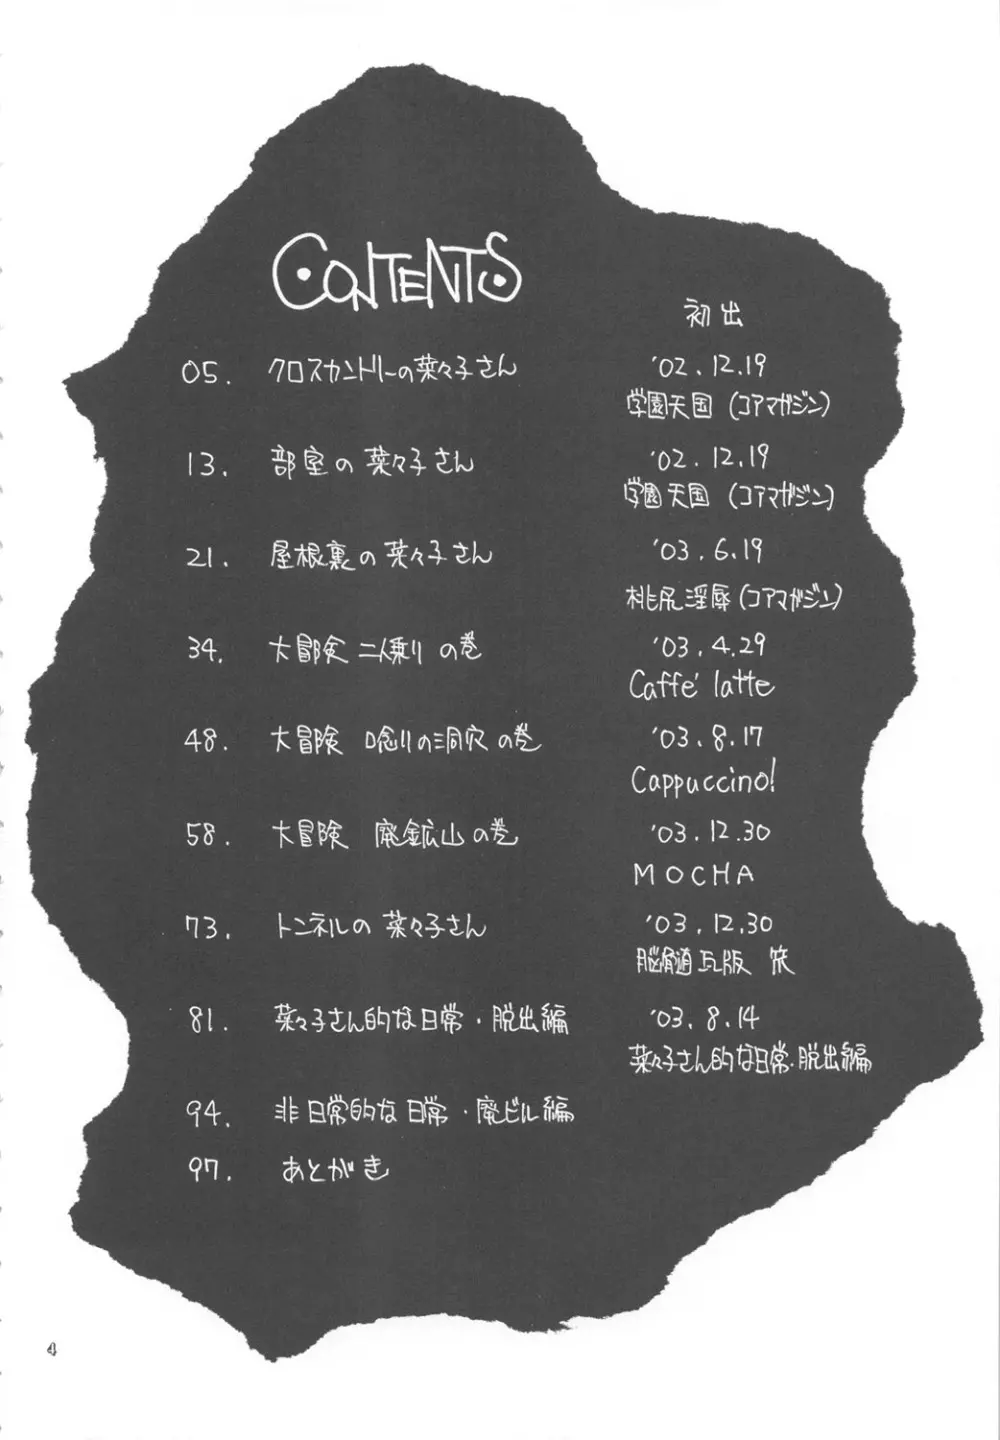 CONTENTS
初出
05. クロスカントリーの菜々子さん '02.12.19
学園天国 (コアマガジン)
13. 部室の菜々子さん '02.12.19
学園天国 (コアマガジン)
21. 屋根裏の菜々子さん '03.6.19
桃尻淫辱 (コアマガジン)
34. 大冒険 二人乗り の巻 '03.4.29
Caffe' latte
48. 大冒険 唸りの洞穴 の巻 '03.8.17
Cappuccino!
58. 大冒険 廃鉱山 の巻 '03.12.30
MOCHA
73. トンネルの 菜々子さん '03.12.30
脳髄瓦版
81. 菜々子さん的な日常・脱出編 '03.8.14
菜々子さん的な日常・脱出編
94. 非日常的な日常・廃ビル編
97. あとがき
4